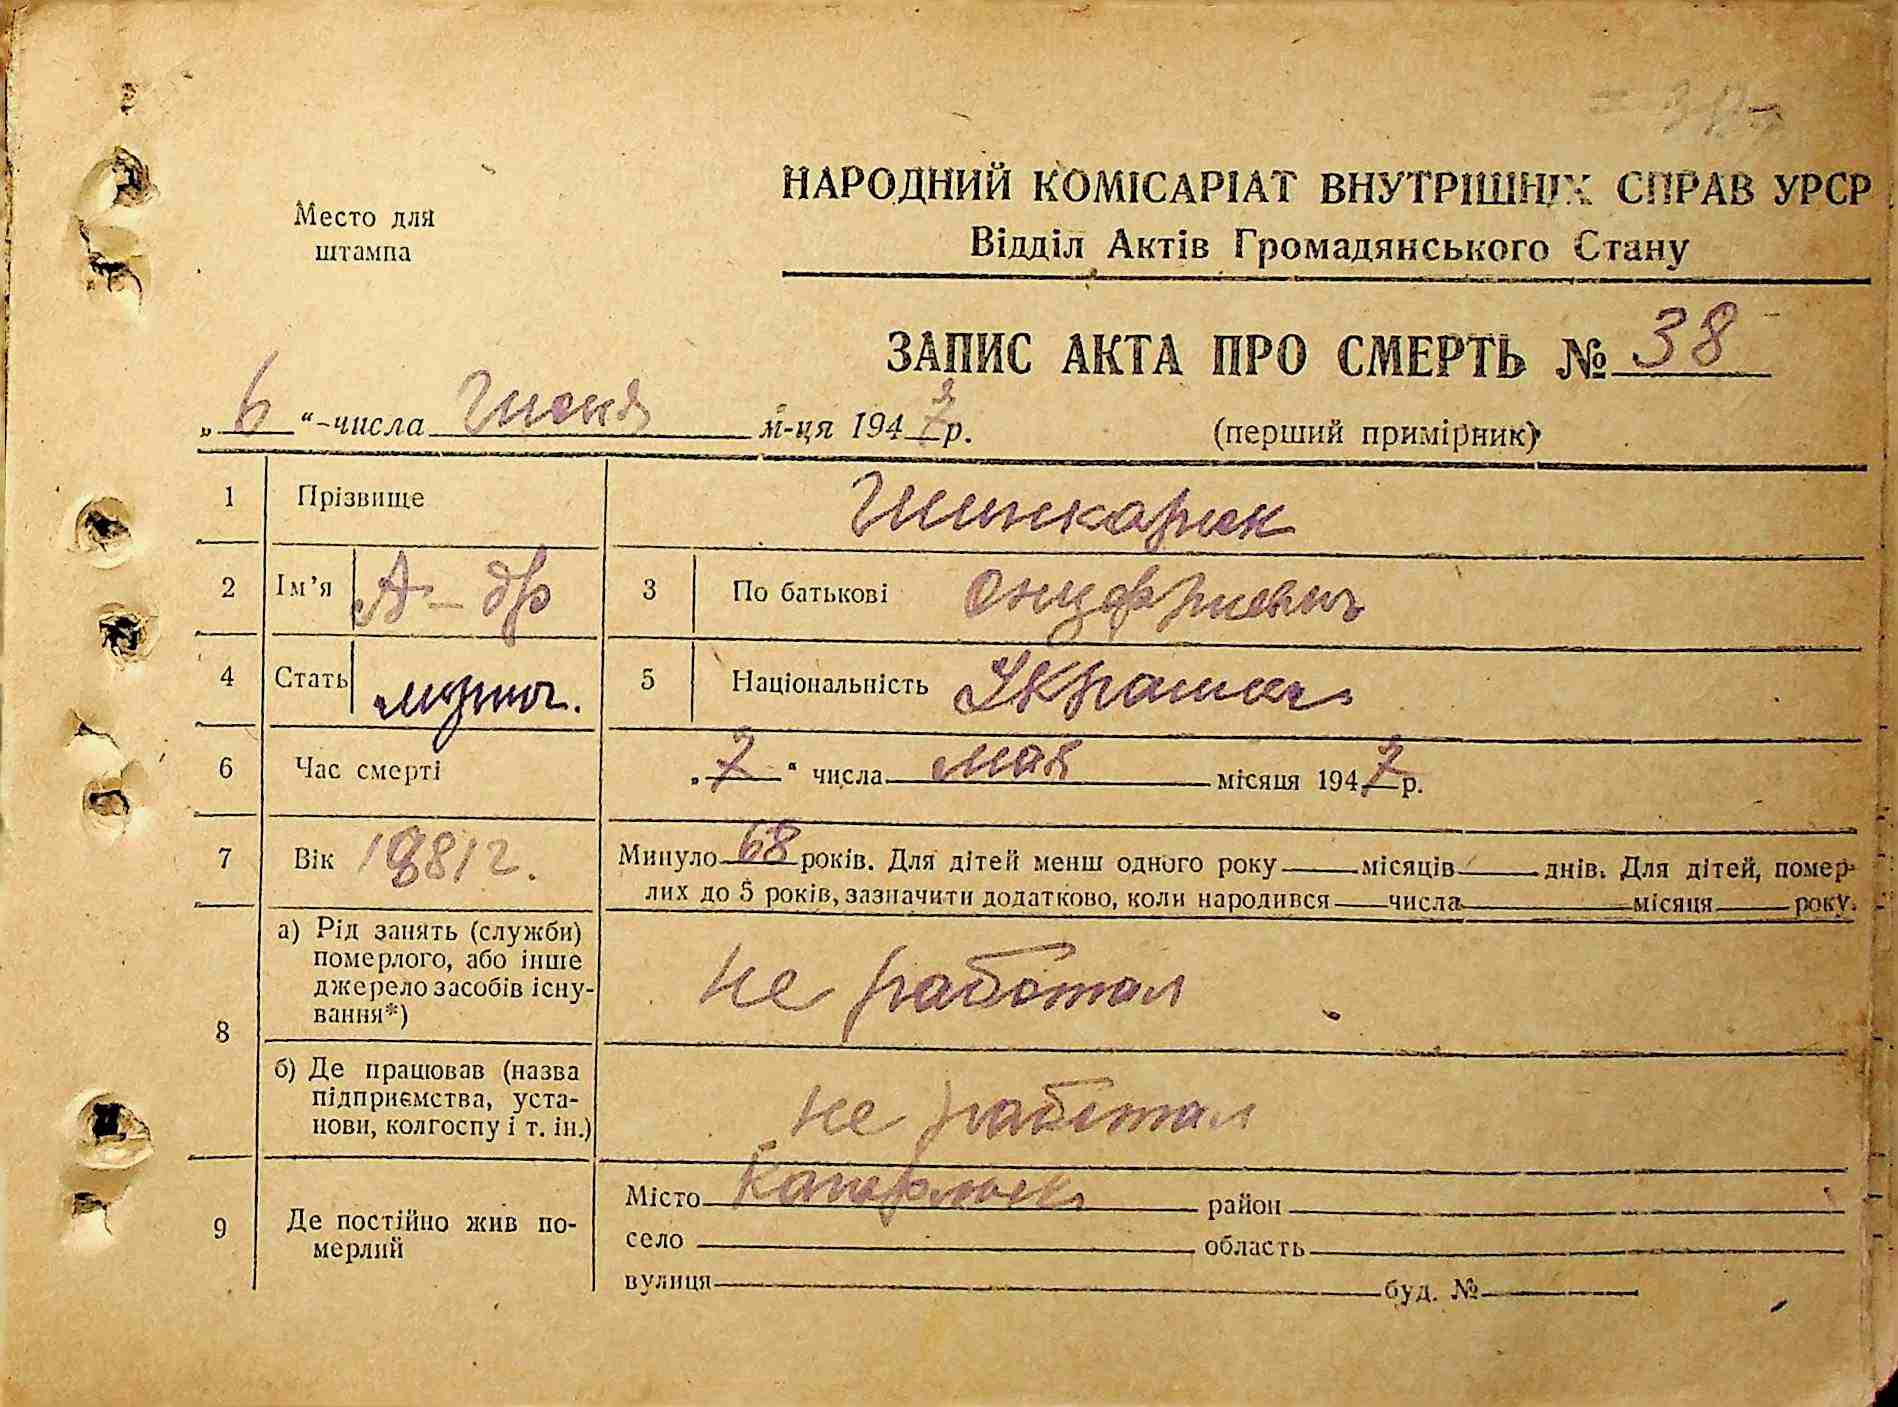 Место для
штампа
НАРОДНИЙ КОМІСАРІАТ ВНУТРІШНІХ СПРАВ УРСР
Відділ Актів Громадянського Стану
ЗАПИС АКТА ПРО СМЕРТЬ № 38
„6“-числа Июня м-ця 1947 р.
(перший примірник)
1 Прізвище Шинкарюк
2 Ім'я А-др 3 По батькові Онуфриевич
4 Стать мужич. 5 Національність Украинец
6 Час смерті „7“ числа мая місяця 1947 р.
7 Вік 1881 г. Минуло 68 років. Для дітей менш одного року місяців днів. Для дітей, помер-
лих до 5 років, зазначити додатково, коли народився числа місяця року.
8 а) Рід занять (служби)
померлого, або інше
джерело засобів існу-
вання*)
не работал
б) Де працював (назва
підприємства, уста-
нови, колгоспу і т. ін.)
не работал
9 Де постійно жив по-
мерлий
Місто Кагарлык район
село область
вулиця буд. №